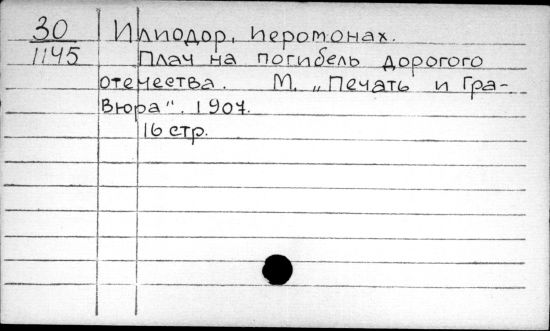 30 Илиодор, иеромонах.
1145 Плач на погибель дорогого
отечества. М. „Печать и Гра-
вюра". 1907.
16 стр.